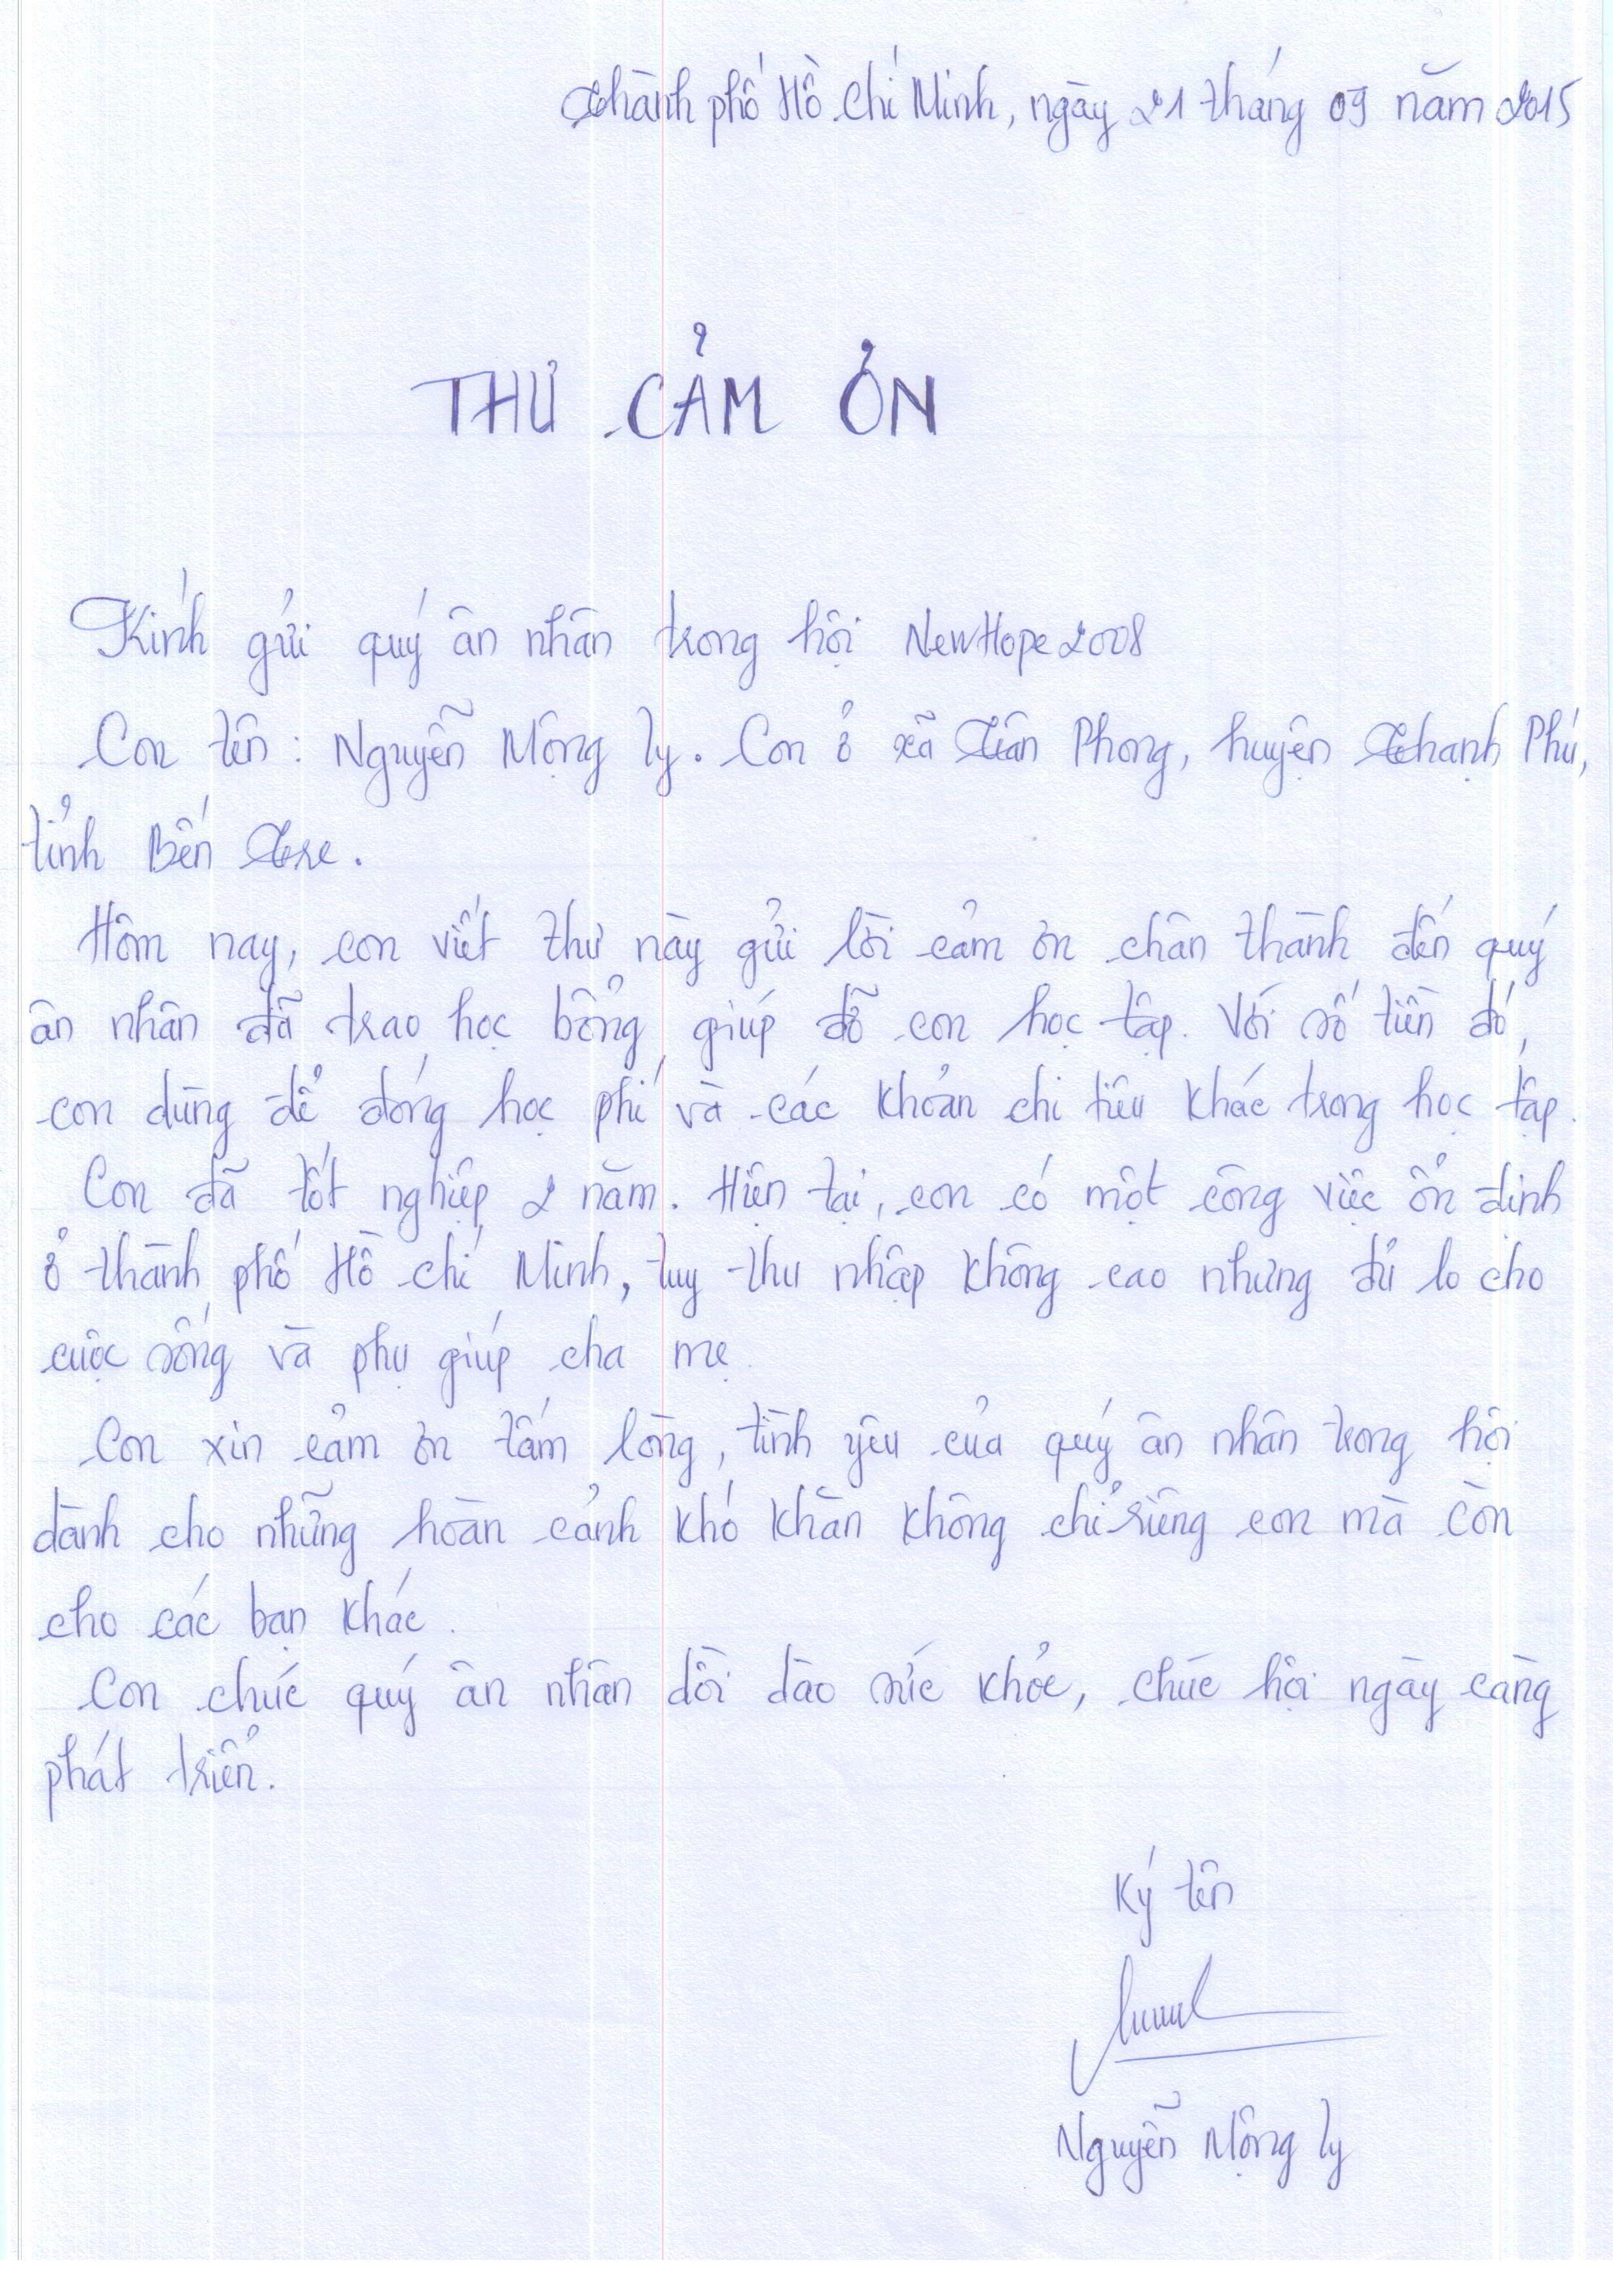 Thành phố Hồ Chí Minh, ngày 21 tháng 09 năm 2015
THƯ CẢM ƠN
Kính gửi quý ân nhân trong hội NewHope2008
Con tên : Nguyễn Mộng Ly. Con ở xã Tân Phong, huyện Thạnh Phú,
tỉnh Bến Tre.
Hôm nay, con viết thư này gửi lời cảm ơn chân thành đến quý
ân nhân đã trao học bổng giúp đỡ con học tập. Với số tiền đó,
con dùng để đóng học phí và các khoản chi tiêu khác trong học tập.
Con đã tốt nghiệp 2 năm. Hiện tại, con có một công việc ổn định
ở thành phố Hồ Chí Minh, tuy thu nhập không cao nhưng đủ lo cho
cuộc sống và phụ giúp cha mẹ.
Con xin cảm ơn tấm lòng, tình yêu của quý ân nhân trong hội
dành cho những hoàn cảnh khó khăn không chỉ riêng con mà còn
cho các bạn khác.
Con chúc quý ân nhân dồi dào sức khỏe, chúc hội ngày càng
phát triển.
Ký tên
Nguyễn Mộng Ly